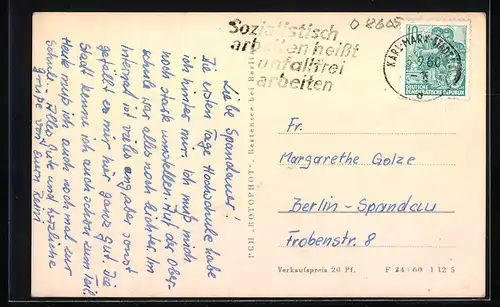 Liebe Spandauer!
Die ersten Tage Hochschule habe
ich hinter mir. Ich muß mich
noch stark umstellen. Auf der Ober-
schule war alles noch leichter. Im
Internat ist vieles eng, aber sonst
gefällt es mir hier ganz gut. Die
Stadt kenne ich auch schon zum Teil.
Heute muß ich auch noch mal zur
Schule. Alles Gute und herzliche
Grüße von Eurem
PGH „ROTOPHOT", Bestensee bei Berlin
Sozialistisch
arbeiten heißt
unfallfrei
arbeiten
O 8605
KARL-MARX-STADT
60
10
DEUTSCHE
DEMOKRATISCHE REPUBLIK
Fr.
Margarethe Golze
Berlin-Spandau
Frobenstr. 8
Verkaufspreis 20 Pf. F 24/60 I 12 5